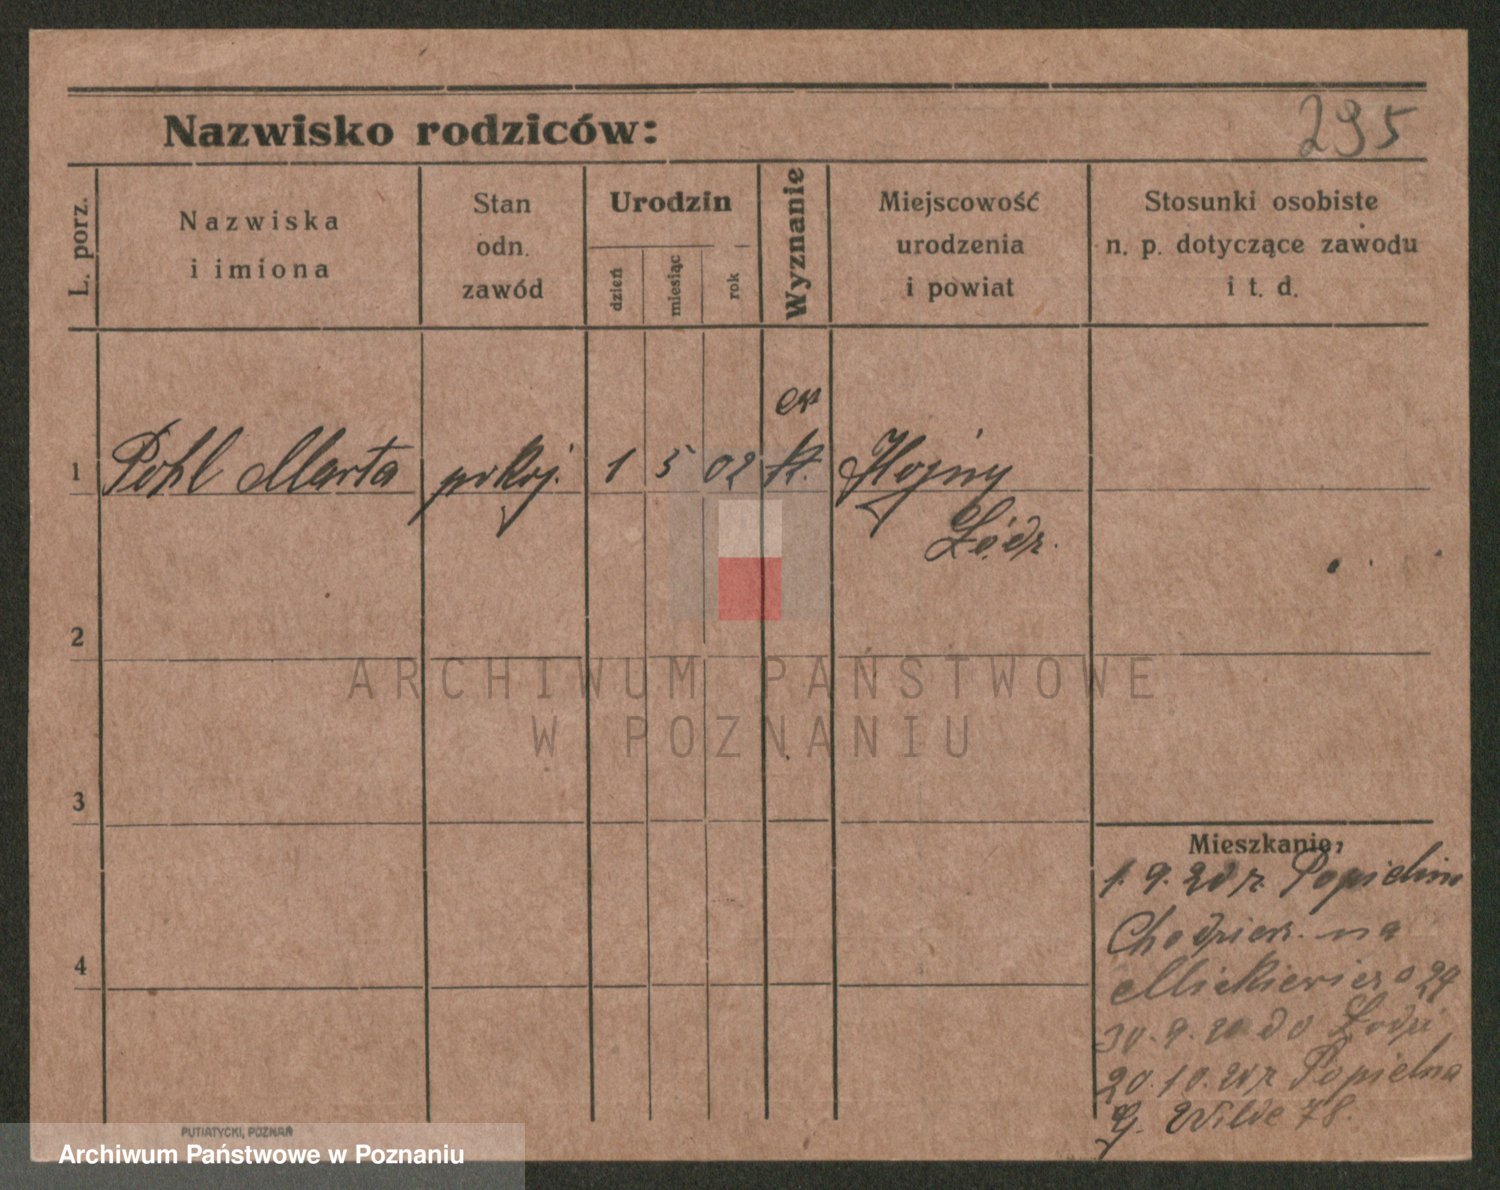 Nazwisko rodziców:
295
L. porz.
Nazwiska
i imiona
Stan
odn.
zawód
Urodzin
dzień
miesiąc
rok
Wyznanie
Miejscowość
urodzenia
i powiat
Stosunki osobiste
n. p. dotyczące zawodu
i t. d.
1
Pohl Marta
pokoj.
1
5
02
kt.
Hojny
Łódz.
2
ARCHIWUM PAŃSTWOWE
W POZNANIU
3
Mieszkanie,
1. 9. 20 z
na
4
Mickiewicza 29
30. 9. 20 do Łodzi
20. 10. z Popielna
G. Wilde 78.
PUTIATYCKI, POZNAŃ
Archiwum Państwowe w Poznaniu